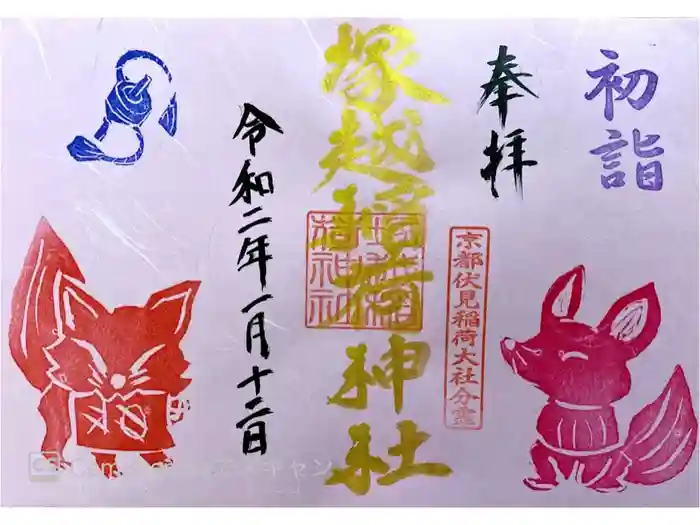 初詣
奉拝
京都伏見稲荷大社分霊
塚越稲荷神社
令和二年一月十二日